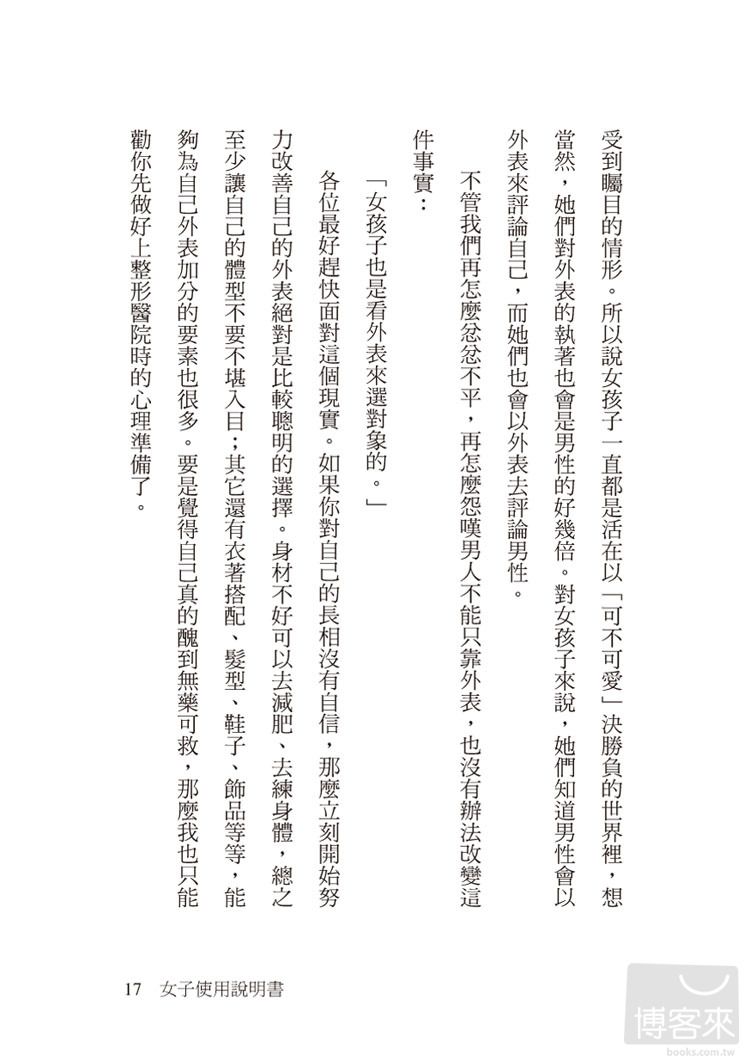 受到矚目的情形。所以說女孩子一直都是活在以「可不可愛」決勝負的世界裡，想
當然，她們對外表的執著也會是男性的好幾倍。對女孩子來說，她們知道男性會以
外表來評論自己，而她們也會以外表去評論男性。
不管我們再怎麼忿忿不平，再怎麼怨嘆男人不能只靠外表，也沒有辦法改變這
件事實：
「女孩子也是看外表來選對象的。」
各位最好趕快面對這個現實。如果你對自己的長相沒有自信，那麼立刻開始努
力改善自己的外表絕對是比較聰明的選擇。身材不好可以去減肥、去練身體，總之
至少讓自己的體型不要不堪入目；其它還有衣著搭配、髮型、鞋子、飾品等等，能
夠為自己外表加分的要素也很多。要是覺得自己真的醜到無藥可救，那麼我也只能
勸你先做好上整形醫院時的心理準備了。
17 女子使用說明書
博客來
books.com.tw